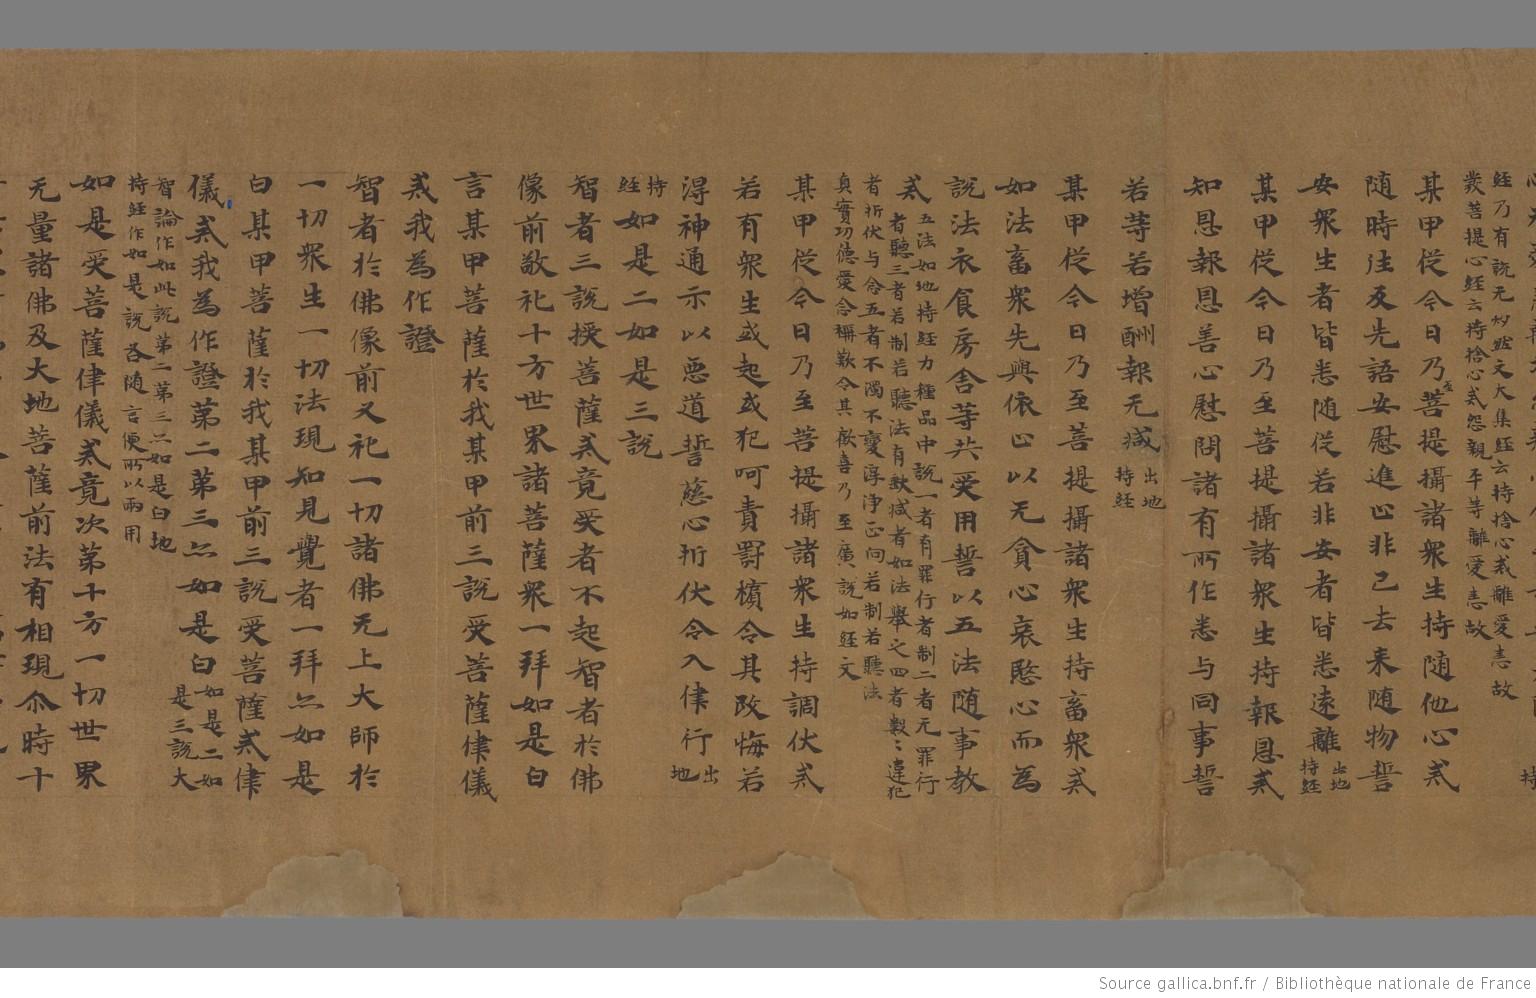 經乃有說无妙然文大集經云持捨心戒離愛恚故
發菩提心經云持捨心戒怨親平等離愛恚故
某甲從今日乃至菩提攝諸衆生持随他心戒
随時往反先語安慰進止非已去来随物誓
安衆生者皆悉随従若非安者皆悉遠離出地持經
某甲従今日乃至菩提攝諸衆生持報恩戒
知恩報恩善心慰問諸有所作悉与同事誓
若等若增酬報无減出地持經
某甲従今日乃至菩提攝諸衆生持畜衆戒
如法畜衆先與依止以无貪心哀愍心而為
說法衣食房舍等共受用誓以五法随事教
戒
五法如地持經力種品中說一者有罪行者制二者无罪行
者聽三者若制若聽法有缺減者如法舉之四者數〻違犯
者折伏与念五者不濁不變淳淨正向若制若聽法
真實功德愛念稱歎令其歡喜乃至廣說如經文
某甲従今日乃至菩提攝諸衆生持調伏戒
若有衆生或起或犯呵責罸擯令其改悔若
淂神通示以惡道誓慈心折伏令入律行出地
持經如是二如是三說
智者三說授菩薩戒竟受者不起智者於佛
像前敬礼十方世界諸菩薩衆一拜如是白
言某甲菩薩於我某甲前三說受菩薩律儀
戒我為作證
智者於佛像前又礼一切諸佛无上大師於
一切衆生一切法現知見覺者一拜亦如是
白某甲菩薩於我某甲前三說受菩薩戒律
儀戒我為作證第二第三亦如是白如是二如是三說大
智論作如此說第二第三亦如是白地
持經作如是說各随言便所以兩用
如是受菩薩律儀戒竟次第十方一切世界
无量諸佛及大地菩薩前法有相現尒時十
Source gallica.bnf.fr / Bibliothèque nationale de France